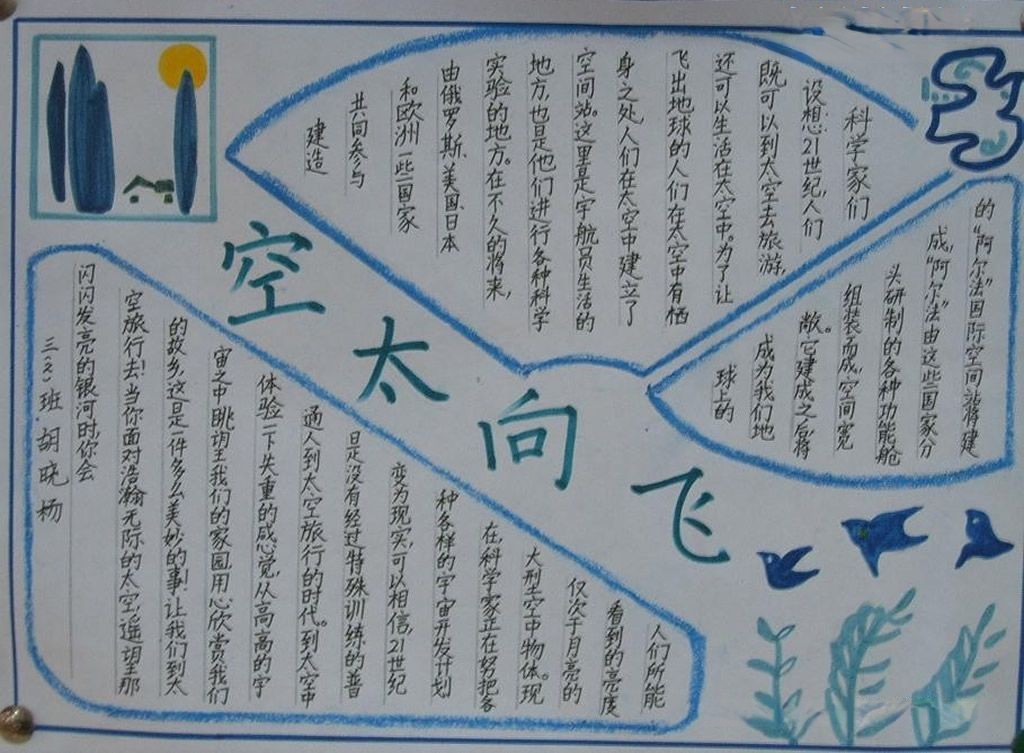 飞向太空
科学家们
设想,21世纪,人们
既可以到太空去旅游,
还可以生活在太空中。为了让
飞出地球的人们在太空中有栖
身之处,人们在太空中建立了
空间站。这里是宇航员生活的
地方,也是他们进行各种科学
实验的地方。在不久的将来,
由俄罗斯、美国、日本
和欧洲一些国家
共同参与
建造
的“阿尔法”国际空间站将建
成,“阿尔法”由这些国家分
头研制的各种功能舱
组装而成,空间宽
敞。它建成之后,将
成为我们地
球上的
人们所能
看到的亮度
仅次于月亮的
大型空中物体。现
在,科学家正在努把各
种各样的宇宙开发计划
变为现实,可以相信,21世纪
日是没有经过特殊训练的普
通人到太空旅行的时代。到太空中
体验一下失重的感觉,从高高的宇
宙之中眺望我们的家园,用心欣赏我们
的故乡,这是一件多么美妙的事!让我们到太
空旅行去!当你面对浩瀚无际的太空,遥望那
闪闪发亮的银河时,你会
三(2)班 胡晓杨